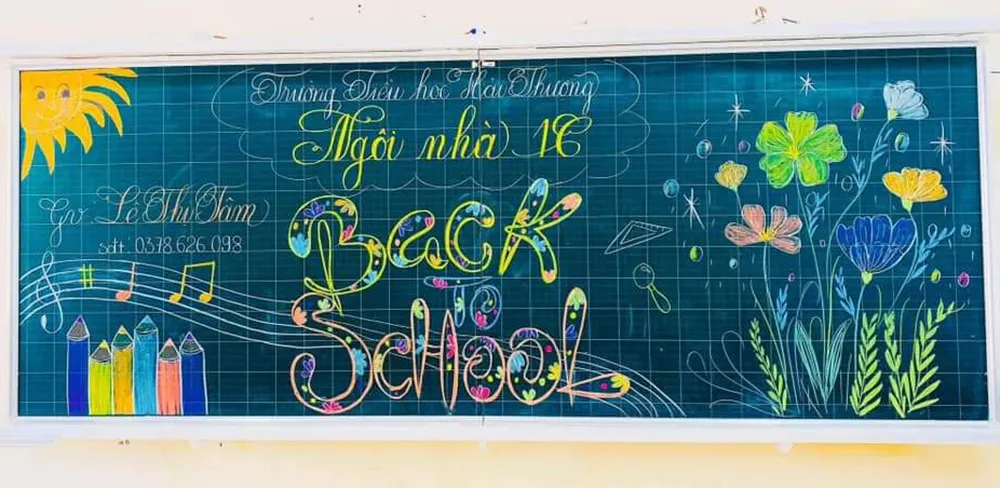 Trường Tiểu học Hải Thượng
Ngôi nhà 1C
Gv: Lê Thị Tâm
sđt: 0378.626.098
Back
To
School